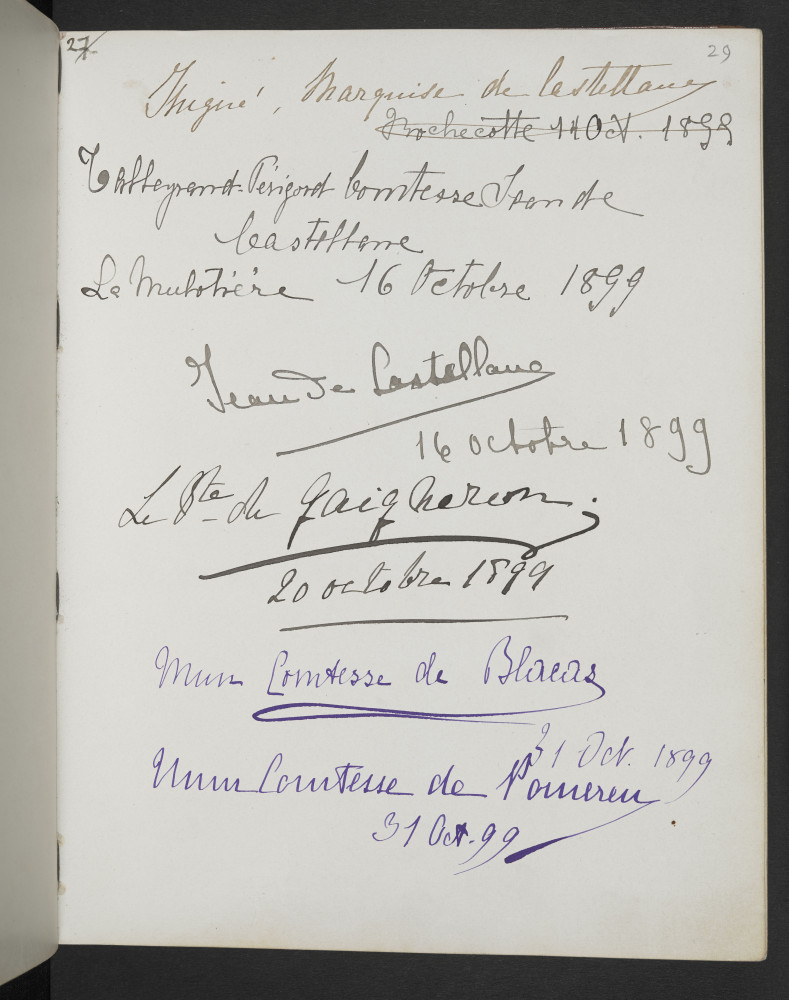 27
29
Juigné, Marquise de Castellane
Rochecotte 14 Oct. 1899
Talleyrand-Périgord Comtesse Jean de
Castellane
La Mulotière 16 Octobre 1899
Jean de Castellane
16 octobre 1899
Le Cte de Gaigneron.
20 octobre 1899
Mun Comtesse de Blacas
31 Oct. 1899
Mun Comtesse de Pomereu
31 Oct. 99